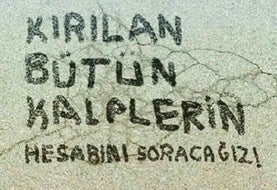 KIRILAN
BÜTÜN
KALPLERİN
HESABINI SORACAĞIZ!